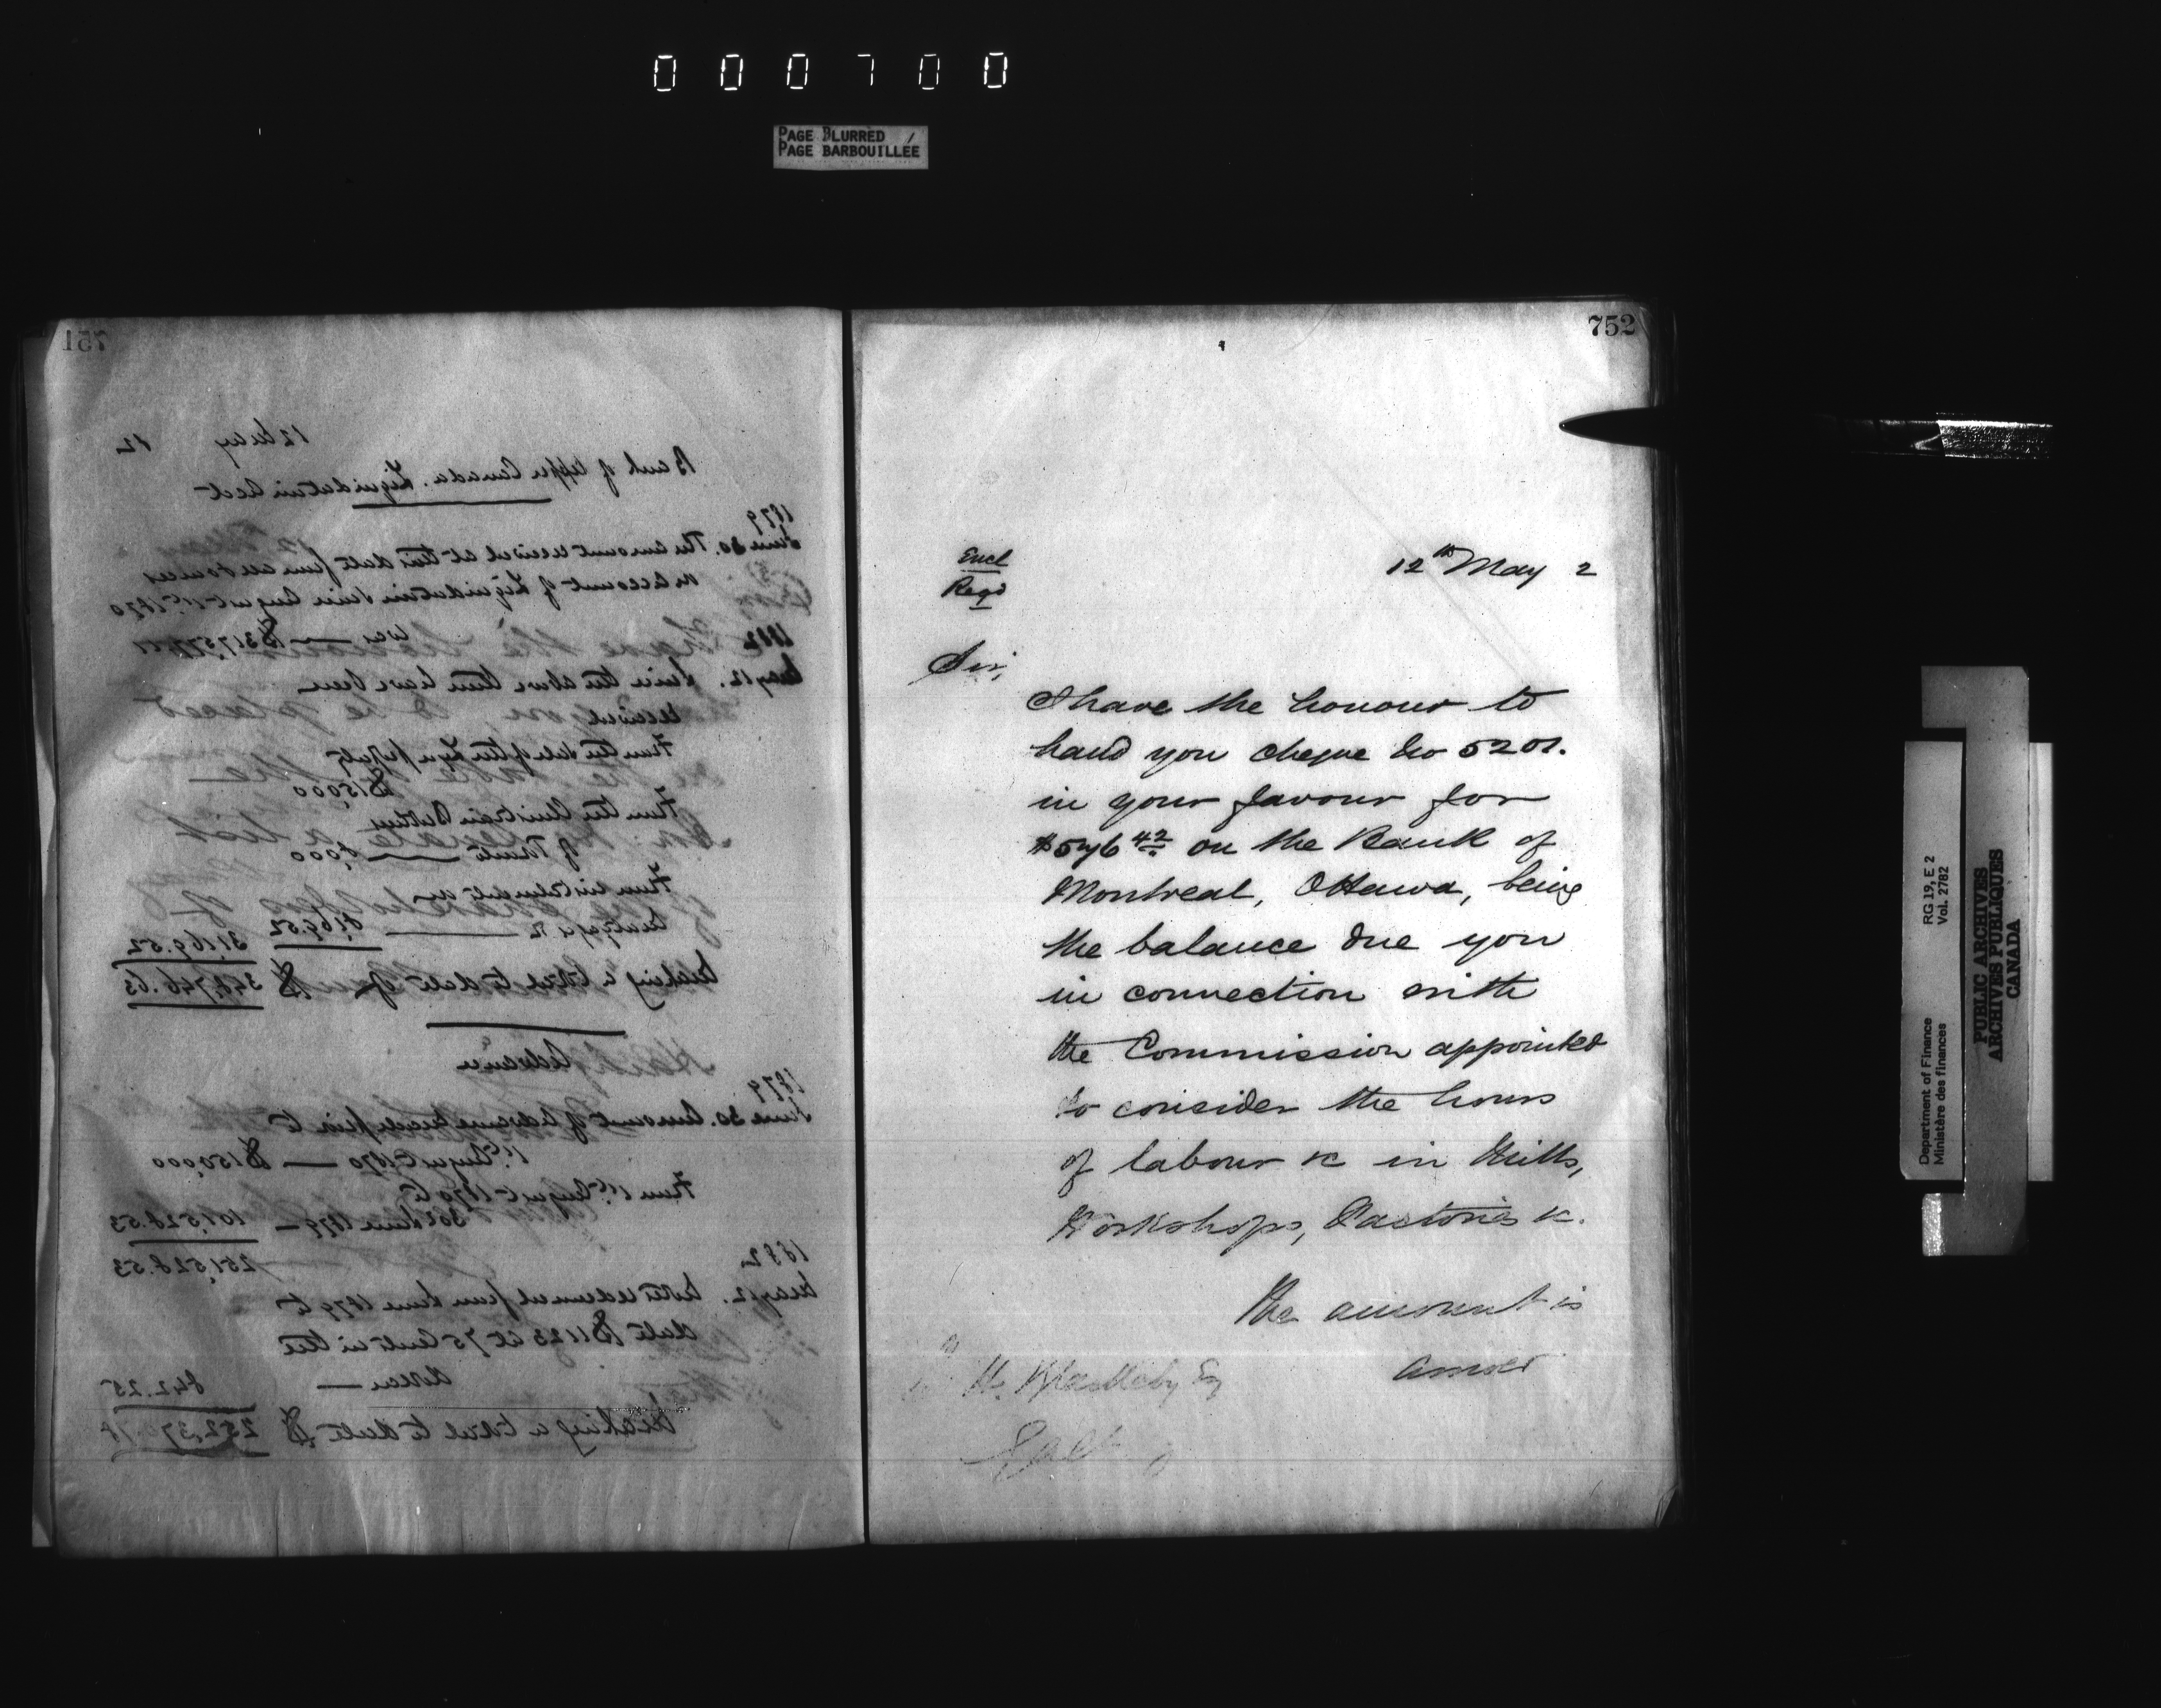 000700
PAGE BLURRED
PAGE BARBOUILLÉE
751
12 May 82
Bank of Upper Canada. Liquidation Acct
1879
June 30. The amount received at this date from all sources
on account of Liquidation since August 1st 1870
was — $317,577.11
1882
May 12. Since the above there have been
received
From the sale of the Lyn property
$15,000
From the
of Trust — 8,000
From instalments on
— 8,169.52 31,169.52
Making a total to date of $348,746.63
Advances
1879
June 30. Amount of advances made prior to
1st August 1870 — $150,000
From 1st August 1870 to
30th June 1879 — 101,528.53
251,528.53
1882
May 12. Notes redeemed from June 1879 to
date $1123 at 75 cents in the
— 842.25
Making a total to date $252,370.78
752
Encl
Regd
12th May 2
Sir,
I have the honour to
hand you cheque No 5201.
in your favour for
$576 42 on the Bank of
Montreal, Ottawa, being
the balance due you
in connection with
the Commission appointed
to consider the hours
of labour &c in Mills,
Workshops, Factories &c.
The amount is
RG 19, E 2
Vol. 2782
Department of Finance
Ministère des finances
PUBLIC ARCHIVES
ARCHIVES PUBLIQUES
CANADA